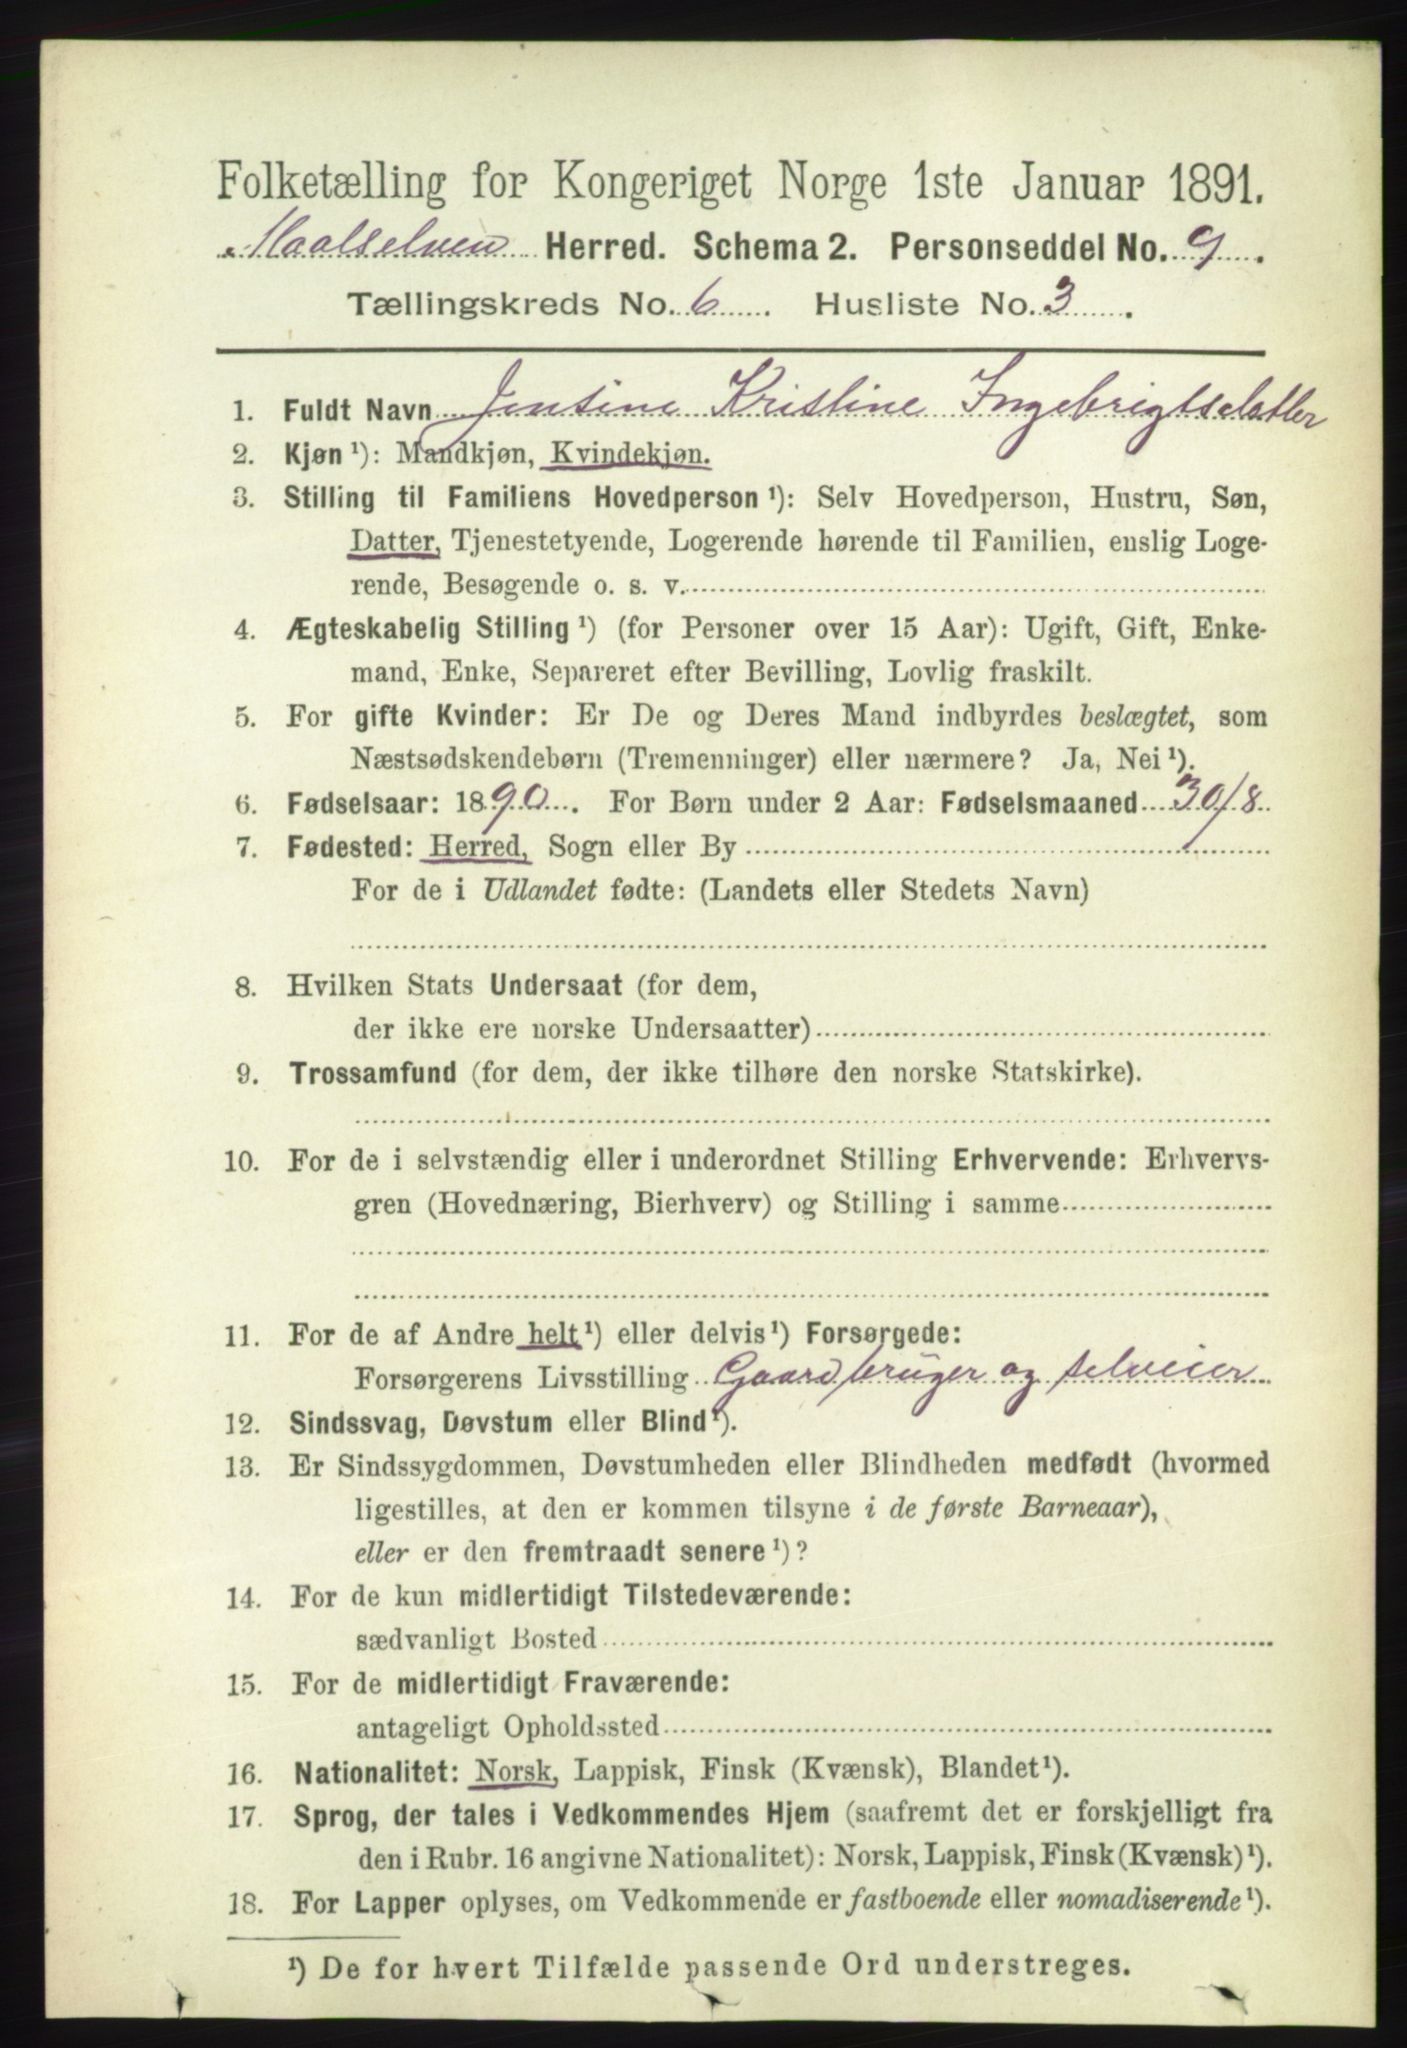 Folketælling for Kongeriget Norge 1ste Januar 1891.
Maalselven Herred. Schema 2. Personseddel No. 9.
Tællingskreds No. 6. Husliste No. 3.
1. Fuldt Navn Jensine Kristine Ingebrigtsdatter
2. Kjøn ¹): Mandkjøn, Kvindekjøn.
3. Stilling til Familiens Hovedperson ¹): Selv Hovedperson, Hustru, Søn,
Datter, Tjenestetyende, Logerende hørende til Familien, enslig Loge-
rende, Besøgende o. s. v.
4. Ægteskabelig Stilling ¹) (for Personer over 15 Aar): Ugift, Gift, Enke-
mand, Enke, Separeret efter Bevilling, Lovlig fraskilt.
5. For gifte Kvinder: Er De og Deres Mand indbyrdes beslægtet, som
Næstsødskendebørn (Tremenninger) eller nærmere? Ja, Nei ¹).
6. Fødselsaar: 1890. For Børn under 2 Aar: Fødselsmaaned 30/8
7. Fødested: Herred, Sogn eller By
For de i Udlandet fødte: (Landets eller Stedets Navn)
8. Hvilken Stats Undersaat (for dem,
der ikke ere norske Undersaatter)
9. Trossamfund (for dem, der ikke tilhøre den norske Statskirke).
10. For de i selvstændig eller i underordnet Stilling Erhvervende: Erhvervs-
gren (Hovednæring, Bierhverv) og Stilling i samme
11. For de af Andre helt ¹) eller delvis ¹) Forsørgede:
Forsørgerens Livsstilling Gaardbruger og selveier
12. Sindssvag, Døvstum eller Blind ¹).
13. Er Sindssygdommen, Døvstumheden eller Blindheden medfødt (hvormed
ligestilles, at den er kommen tilsyne i de første Barneaar),
eller er den fremtraadt senere ¹)?
14. For de kun midlertidigt Tilstedeværende:
sædvanligt Bosted
15. For de midlertidigt Fraværende:
antageligt Opholdssted
16. Nationalitet: Norsk, Lappisk, Finsk (Kvænsk), Blandet ¹).
17. Sprog, der tales i Vedkommendes Hjem (saafremt det er forskjelligt fra
den i Rubr. 16 angivne Nationalitet): Norsk, Lappisk, Finsk (Kvænsk) ¹).
18. For Lapper oplyses, om Vedkommende er fastboende eller nomadiserende ¹).
¹) De for hvert Tilfælde passende Ord understreges.